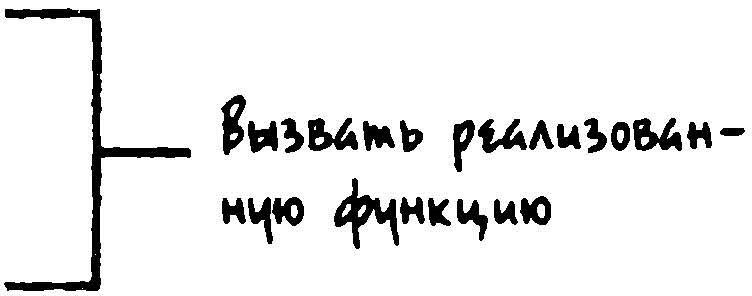 Вызвать реализован-
ную функцию